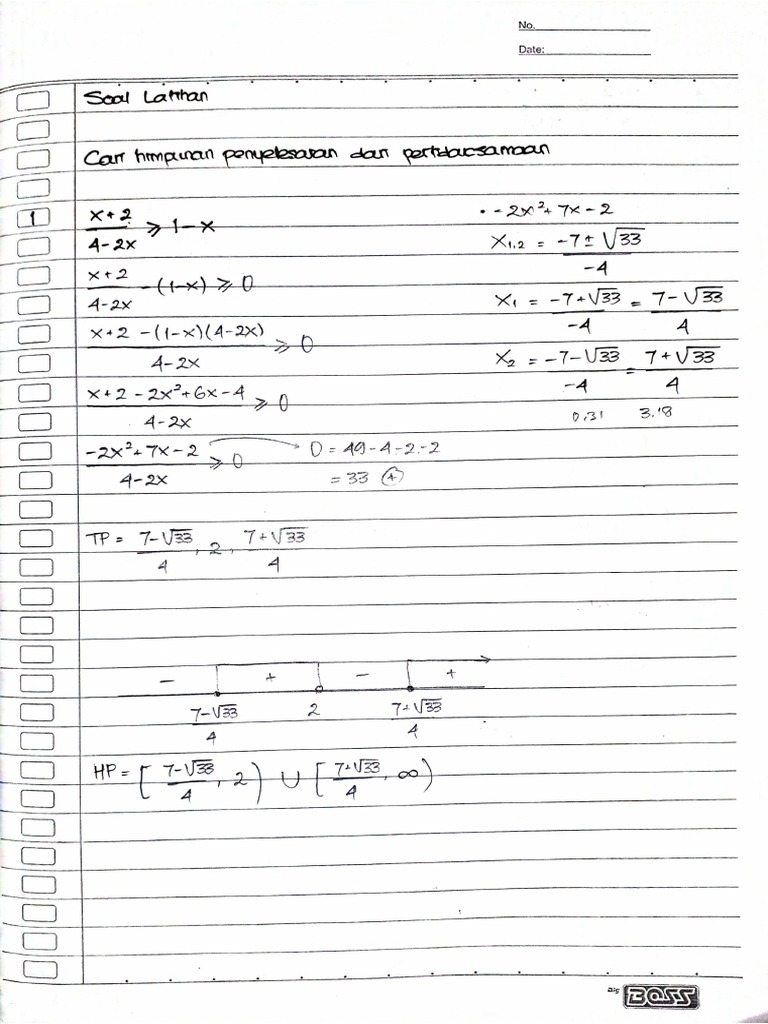 No.
Date:
Soal Latihan
Cari himpunan penyelesaian dari pertidaksamaan
1
x+2/4-2x ≥ 1-x
x+2/4-2x - (1-x) ≥ 0
x+2 -(1-x)(4-2x)/4-2x ≥ 0
x+2 - 2x²+6x-4/4-2x ≥ 0
-2x²+7x-2/4-2x ≥ 0
D = 49-4-2.-2
= 33 (+)
• -2x²+7x-2
X1,2 = -7±√33/-4
X1 = -7+√33/-4 = 7-√33/4
X2 = -7-√33/-4 = 7+√33/4
0,31 3.18
TP = 7-√33/4, 2, 7+√33/4
- + - +
7-√33/4 2 7+√33/4
HP = [7-√33/4, 2) ∪ [7+√33/4, ∞)
Big BOSS